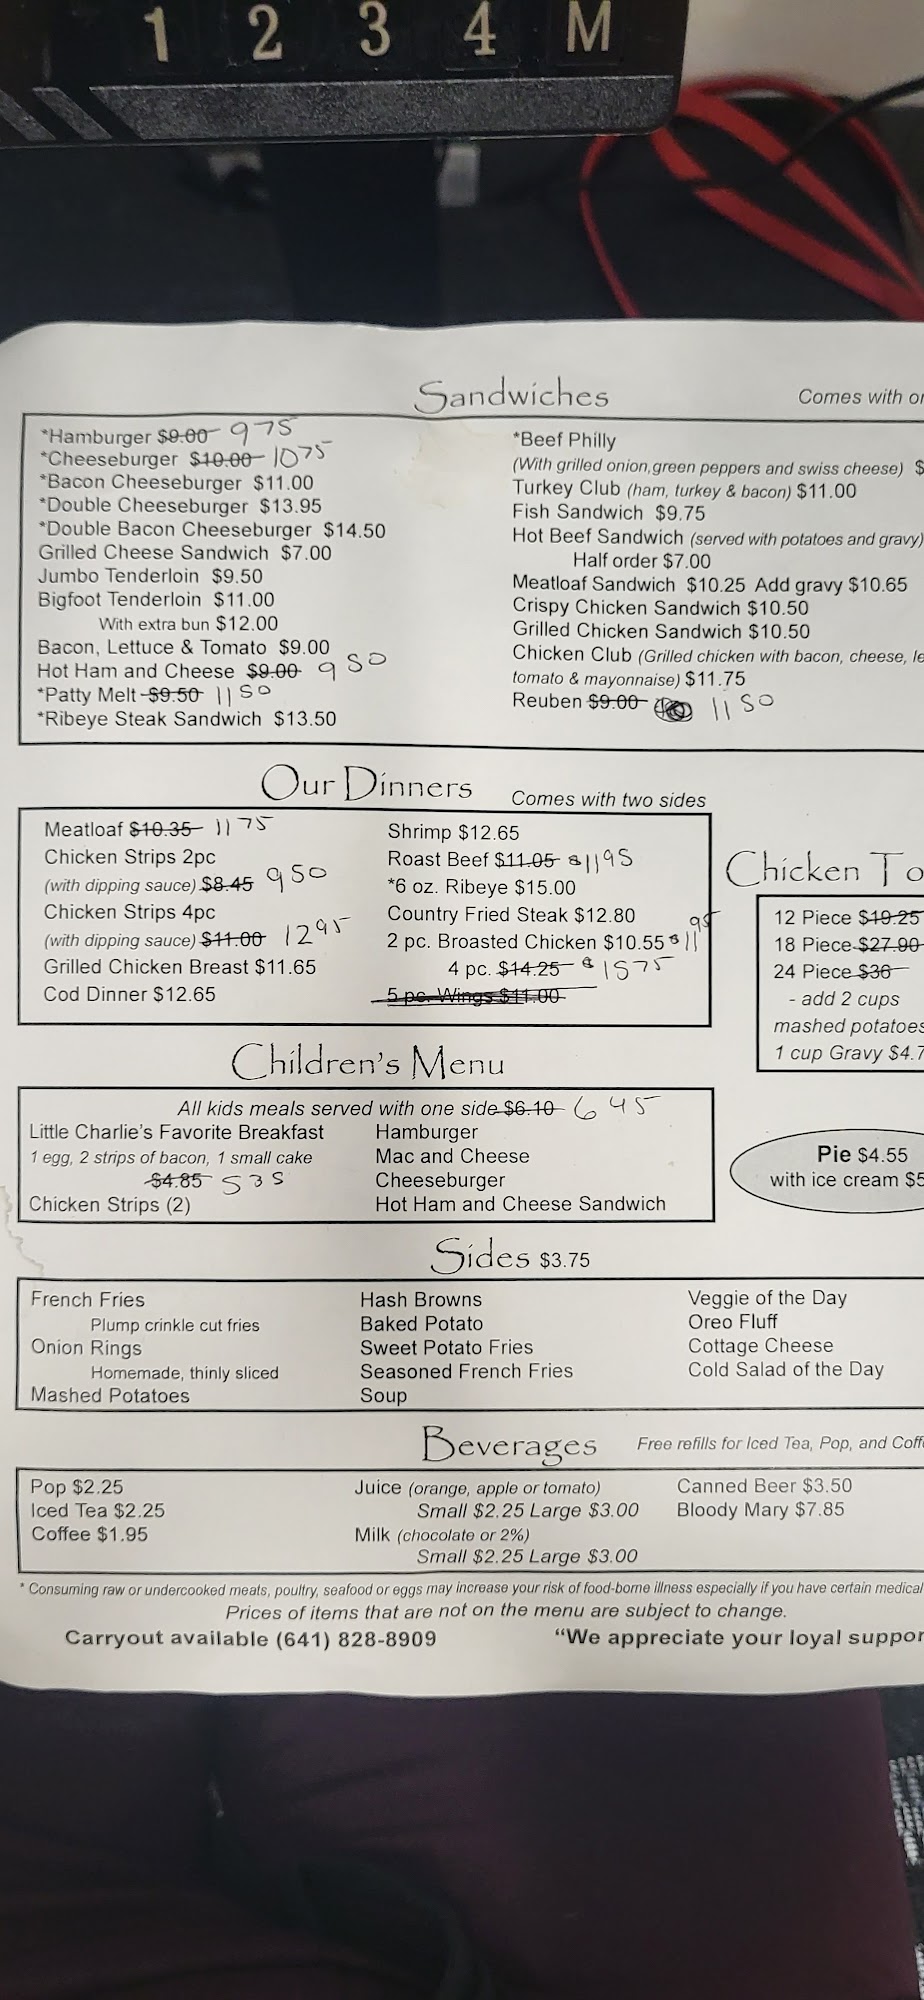 1 2 3 4 M
Sandwiches
Comes with
*Hamburger $9.00 9 75
*Cheeseburger $10.00 10 75
*Bacon Cheeseburger $11.00
*Double Cheeseburger $13.95
*Double Bacon Cheeseburger $14.50
Grilled Cheese Sandwich $7.00
Jumbo Tenderloin $9.50
Bigfoot Tenderloin $11.00
With extra bun $12.00
Bacon, Lettuce & Tomato $9.00
Hot Ham and Cheese $9.00 9 50
*Patty Melt $9.50 11 50
*Ribeye Steak Sandwich $13.50
*Beef Philly
(With grilled onion,green peppers and swiss cheese) $
Turkey Club (ham, turkey & bacon) $11.00
Fish Sandwich $9.75
Hot Beef Sandwich (served with potatoes and gravy)
Half order $7.00
Meatloaf Sandwich $10.25 Add gravy $10.65
Crispy Chicken Sandwich $10.50
Grilled Chicken Sandwich $10.50
Chicken Club (Grilled chicken with bacon, cheese, le
tomato & mayonnaise) $11.75
Reuben $9.00 11 50
Our Dinners
Comes with two sides
Meatloaf $10.35 11 75
Chicken Strips 2pc
(with dipping sauce) $8.45 9 50
Chicken Strips 4pc
(with dipping sauce) $11.00 12 95
Grilled Chicken Breast $11.65
Cod Dinner $12.65
Shrimp $12.65
Roast Beef $11.05 $11 95
*6 oz. Ribeye $15.00
Country Fried Steak $12.80
2 pc. Broasted Chicken $10.55 $11 95
4 pc. $14.25 $15 75
5 pc. Wings $11.00
Chicken To
12 Piece $19.25
18 Piece $27.90
24 Piece $36
- add 2 cups
mashed potatoes
1 cup Gravy $4.7
Children's Menu
All kids meals served with one side $6.10 6 45
Little Charlie's Favorite Breakfast
1 egg, 2 strips of bacon, 1 small cake
$4.85 5 35
Chicken Strips (2)
Hamburger
Mac and Cheese
Cheeseburger
Hot Ham and Cheese Sandwich
Pie $4.55
with ice cream $5
Sides $3.75
French Fries
Plump crinkle cut fries
Onion Rings
Homemade, thinly sliced
Mashed Potatoes
Hash Browns
Baked Potato
Sweet Potato Fries
Seasoned French Fries
Soup
Veggie of the Day
Oreo Fluff
Cottage Cheese
Cold Salad of the Day
Beverages
Free refills for Iced Tea, Pop, and Coff
Pop $2.25
Iced Tea $2.25
Coffee $1.95
Juice (orange, apple or tomato)
Small $2.25 Large $3.00
Milk (chocolate or 2%)
Small $2.25 Large $3.00
Canned Beer $3.50
Bloody Mary $7.85
* Consuming raw or undercooked meats, poultry, seafood or eggs may increase your risk of food-borne illness especially if you have certain medical
Prices of items that are not on the menu are subject to change.
Carryout available (641) 828-8909
"We appreciate your loyal suppor